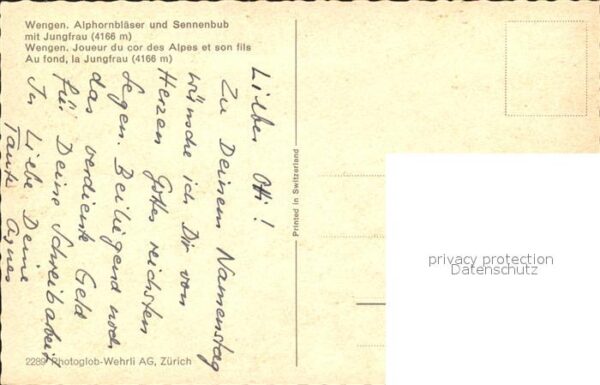 Wengen. Alphornbläser und Sennenbub
mit Jungfrau (4166 m)
Wengen. Joueur du cor des Alpes et son fils
Au fond, la Jungfrau (4166 m)
Lieber Otti!
Zu Deinem Namenstag
wünsche ich Dir von
Herzen Gottes reichsten
Segen. Beiliegend noch
das verdiente Geld
für Deine Schreibarbeit
In Liebe Deine
Tante Agnes
Printed in Switzerland
2289 Photoglob-Wehrli AG, Zürich
privacy protection
Datenschutz